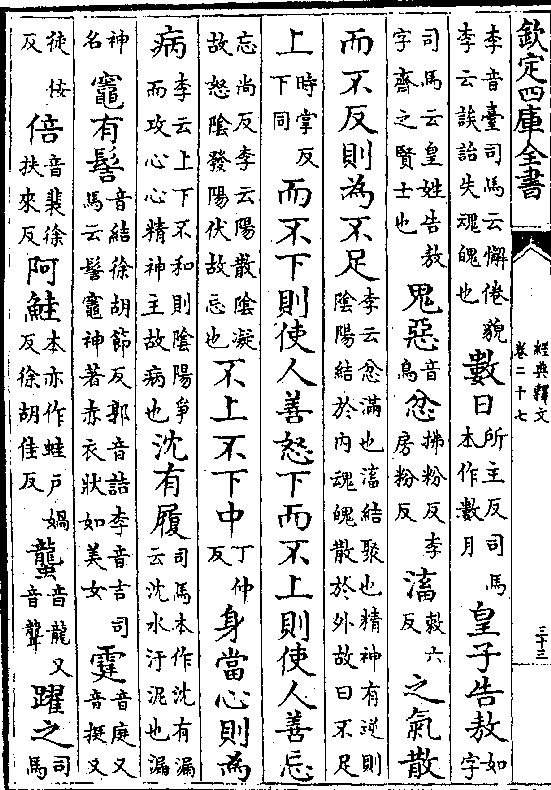 欽定四庫全書
經典釋文
卷二十七
三十三
李音臺司馬云懈倦貌李云誒詒失魂魄也數日所主反司馬本作數月皇子告敖如字
司馬云皇姓告敖字齊之賢士也鬼惡音烏忿拂粉反李房粉反滀敕六反之氣散
而不反則為不足李云忿滿也滀結聚也精神有逆則陰陽結於內魂魄散於外故曰不足
上時掌反下同而不下則使人善怒下而不上則使人善忘
忘尚反李云陽散陰凝故怒陰發陽伏故忘也不上不下中丁仲反身當心則為
病李云上下不和則陰陽爭而攻心心精神主故病也沈有履司馬本作沈有漏云沈水汙泥也漏
神名竈有髻音結徐胡節反郭音詰李音吉司馬云髻竈神著赤衣狀如美女霆音庭又音挺又
徒佞反倍音裴徐扶來反阿鮭本亦作蛙戶媧反徐胡佳反蠪音龍又音聾躍之司馬